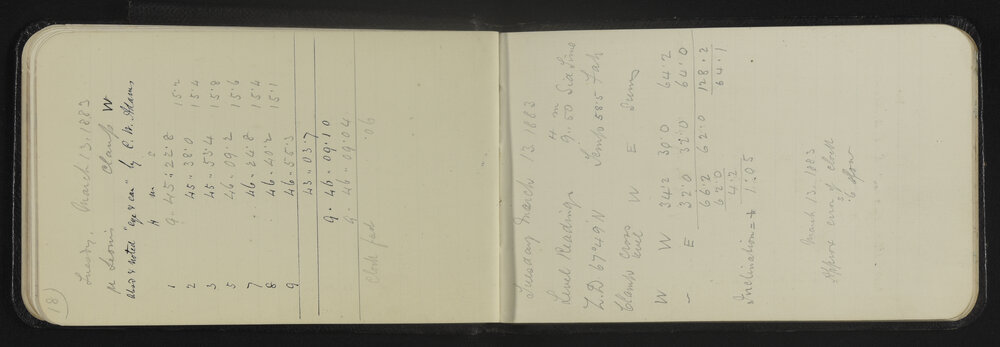 18)
Tuesday. March 13. 1883
μ Leonis Clamp W
Obsd & noted "eye & ear" by C. W. Adams
H m s
1 9. 45 : 22.8 15.2
2 45 . 38.0 15.4
3 45 . 53.4 15.8
5 46 . 09.2 15.6
7 46 . 24.8 15.4
8 46 . 40.2 15.1
9 46 . 55.3
43 . 03.7
9. 46 . 09.10
9. 46 . 09.04
Clock fast .06
Tuesday March 13. 1883
Level Readings H m 9..50 Sid Time
Z.D. 67°49 N Temp 58.5 Fah
Clamp Cross Level W E Sums
W W 34.2 30.0 64.2
- E 32.0 32.0 64.0
66.2 62.0 128.2
62.0 64.1
4.2
Inclination = + 1.05
March 13. 1883
Approx error of clock
s .6 slow